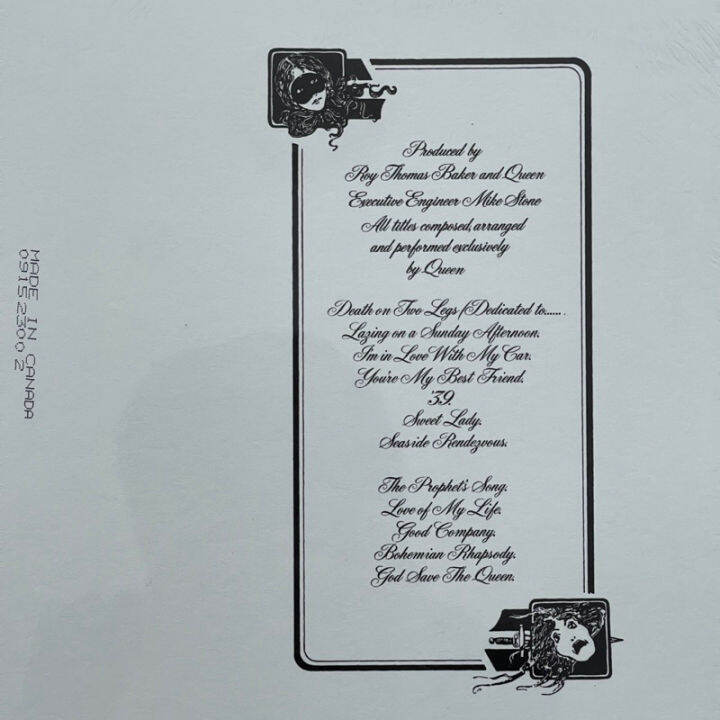 Produced by
Roy Thomas Baker and Queen
Executive Engineer Mike Stone
All titles composed, arranged
and performed exclusively
by Queen
Death on Two Legs/Dedicated to......
Lazing on a Sunday Afternoon.
I'm in Love With My Car.
You're My Best Friend.
'39.
Sweet Lady.
Seaside Rendezvous.
The Prophet's Song.
Love of My Life.
Good Company.
Bohemian Rhapsody.
God Save The Queen.
MADE IN CANADA
0915 2300 2